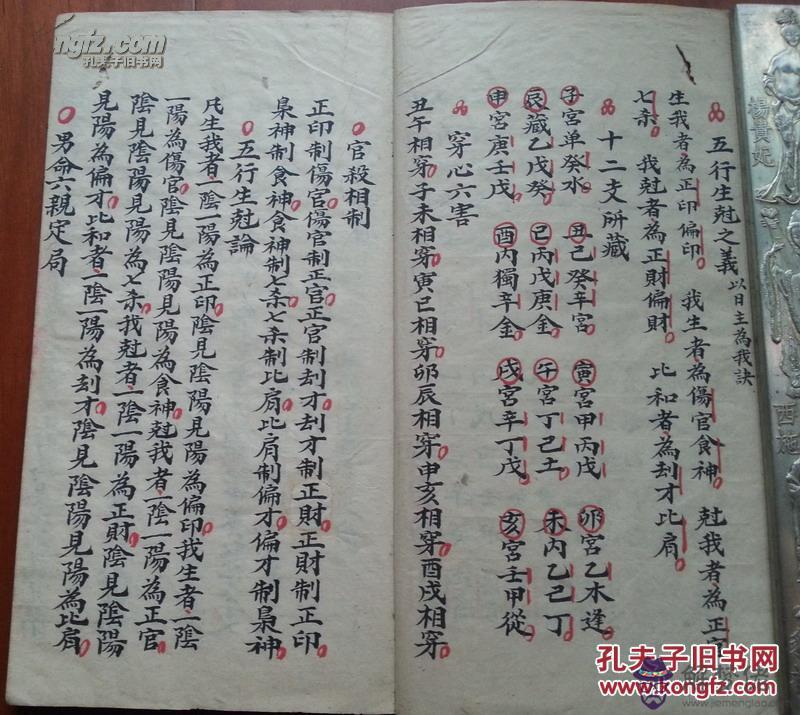 五行生尅之義以日主為我訣
生我者為正印偏印 我生者為傷官食神 尅我者為正官
七杀 我尅者為正財偏財 比和者為刦才比肩
十二支所藏
子宮单癸水 丑己癸辛宮 寅宮甲丙戊 卯宮乙木逢
辰藏乙戊癸 巳丙戊庚金 午宮丁己土 未丙乙己丁
申宮庚壬戊 酉丙獨辛金 戌宮辛丁戊 亥宮壬甲從
穿心六害
丑午相穿子未相穿寅巳相穿卯辰相穿申亥相穿酉戌相穿
官殺相制
正印制傷官傷官制正官正官制刦才刦才制正財正財制正印
梟神制食神食神制七杀七杀制比肩比肩制偏才偏才制梟神
五行生尅論
凡生我者一陰一陽為正印陰見陰陽見陽為偏印我生者一陰
一陽為傷官陰見陰陽見陽為食神尅我者一陰一陽為正官
陰見陰陽見陽為七杀我尅者一陰一陽為正財陰見陰陽
見陽為偏才比和者一陰一陽為刦才陰見陰陽見陽為比肩
男命六親定局
楊貴妃
西施
kongfz.com
孔夫子旧书网
孔夫子旧书网
www.kongfz.com
www.jiemenglao.com